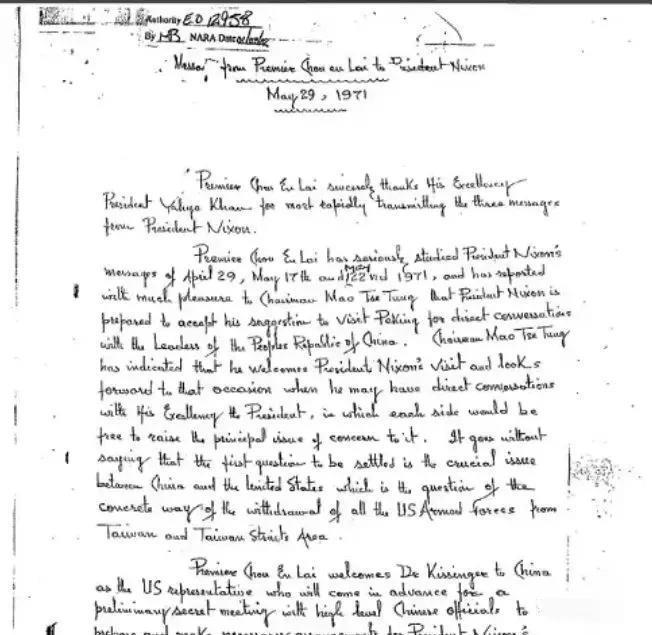 Authority E.O. 12958
By MB NARA Date
Message from Premier Chou en Lai to President Nixon
May 29, 1971
"Premier Chou En Lai sincerely thanks His Excellency
President Yahya Khan for most rapidly transmitting the three messages
from President Nixon.
Premier Chou En Lai has seriously studied President Nixon's
messages of April 29, May 17th and May 22nd 1971, and has reported
with much pleasure to Chairman Mao Tse Tung that President Nixon is
prepared to accept his suggestion to visit Peking for direct conversations
with the Leaders of the Peoples Republic of China. Chairman Mao Tse Tung
has indicated that he welcomes President Nixon's visit and looks
forward to that occasion when he may have direct conversations
with His Excellency the President, in which each side would be
free to raise the principal issue of concern to it. It goes without
saying that the first question to be settled is the crucial issue
between China and the United States which is the question of the
concrete way of the withdrawal of all the US Armed Forces from
Taiwan and Taiwan Straits Area.
Premier Chou En Lai welcomes Dr Kissinger to China
as the US representative who will come in advance for a
preliminary secret meeting with high level Chinese officials to
prepare and make necessary arrangements for President Nixon's